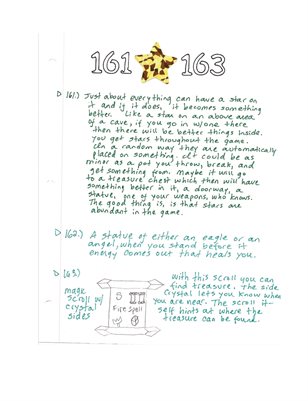 161 163
▷ 161.) Just about everything can have a star on
it and if it does, it becomes something
better. Like a star on an above area
of a cave, if you go in w/one there
then there will be better things inside.
You get stars throughout the game.
In a random way they are automatically
placed on something. It could be as
minor as a pot you throw, break, and
get something from. Maybe it will go
to a treasure chest which then will have
something better in it, a doorway, a
statue, one of your weapons, who knows.
The good thing is, is that stars are
abundant in the game.
▷ 162.) A statue of either an eagle or an
angel, when you stand before it
energy comes out that heals you.
▷ 163.)
magic
scroll w/
crystal
sides
5
Fire Spell
with this scroll you can
find treasure. The side
crystal lets you know when
you are near. The scroll it-
self hints at where the
treasure can be found.